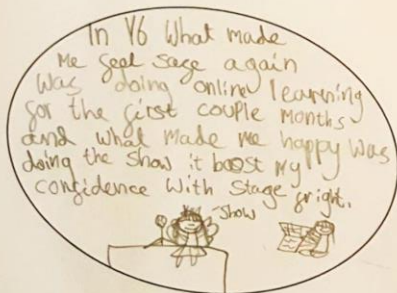 In Y6 What made
Me feel safe again
Was doing online learning
for the first couple months
and what Made me happy Was
doing the Show it boost My
confidence With Stage fright.
Show